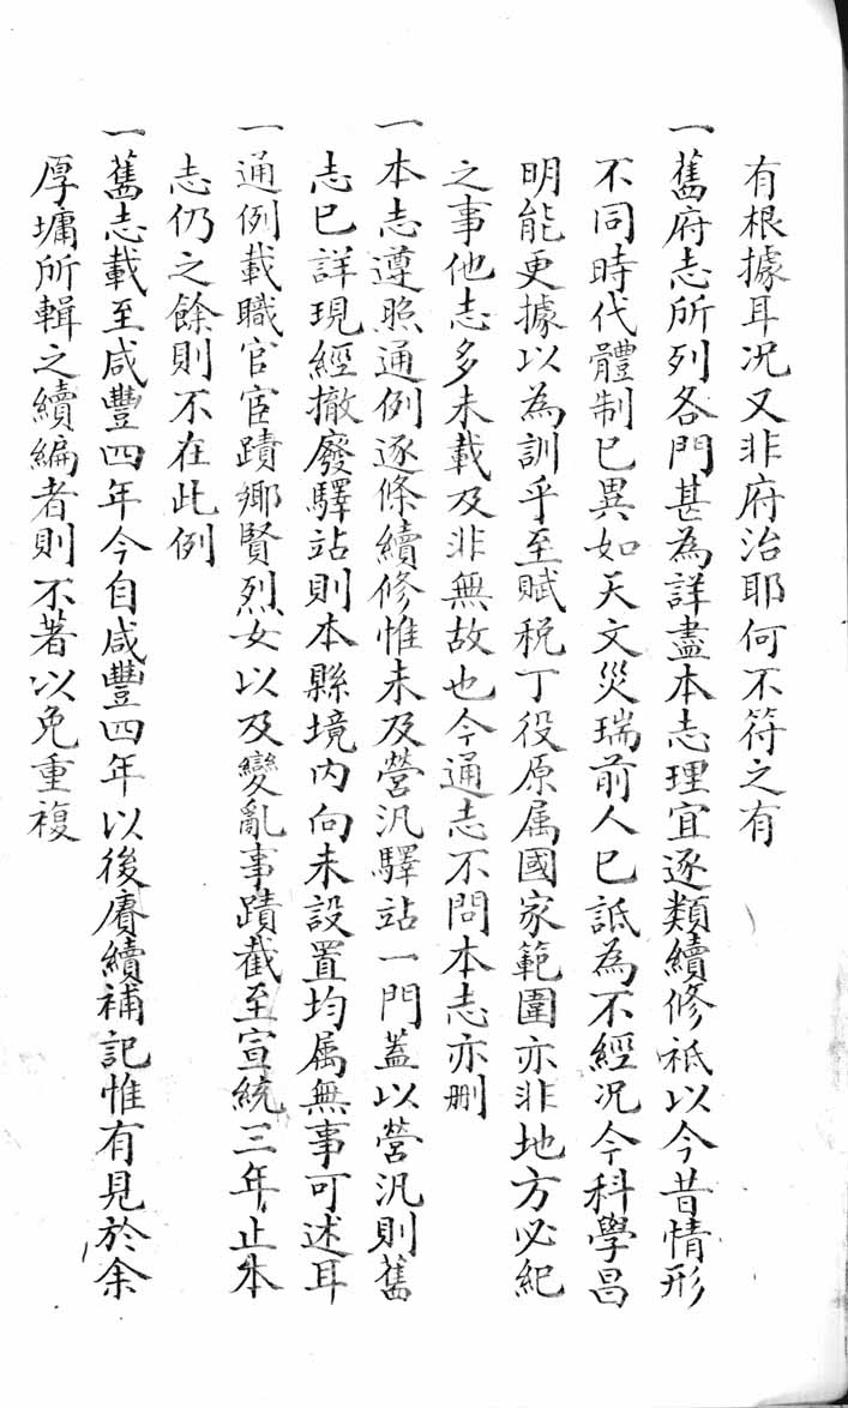 有根據耳况又非府治耶何不符之有
一舊府志所列各門甚為詳盡本志理宜逐類續修祗以今昔情形
不同時代體制已異如天文災瑞前人已詆為不經况今科學昌
明能更據以為訓乎至賦稅丁役原属國家範圍亦非地方必紀
之事他志多未載及非無故也今通志不問本志亦刪
一本志遵照通例逐條續修惟未及營汛驛站一門蓋以營汛則舊
志已詳現經撤廢驛站則本縣境内向未設置均属無事可述耳
一通例載職官宦蹟鄉賢烈女以及變亂事蹟截至宣統三年止本
志仍之餘則不在此例
一舊志載至咸豐四年今自咸豐四年以後賡續補記惟有見於余
厚墉所輯之續編者則不著以免重複